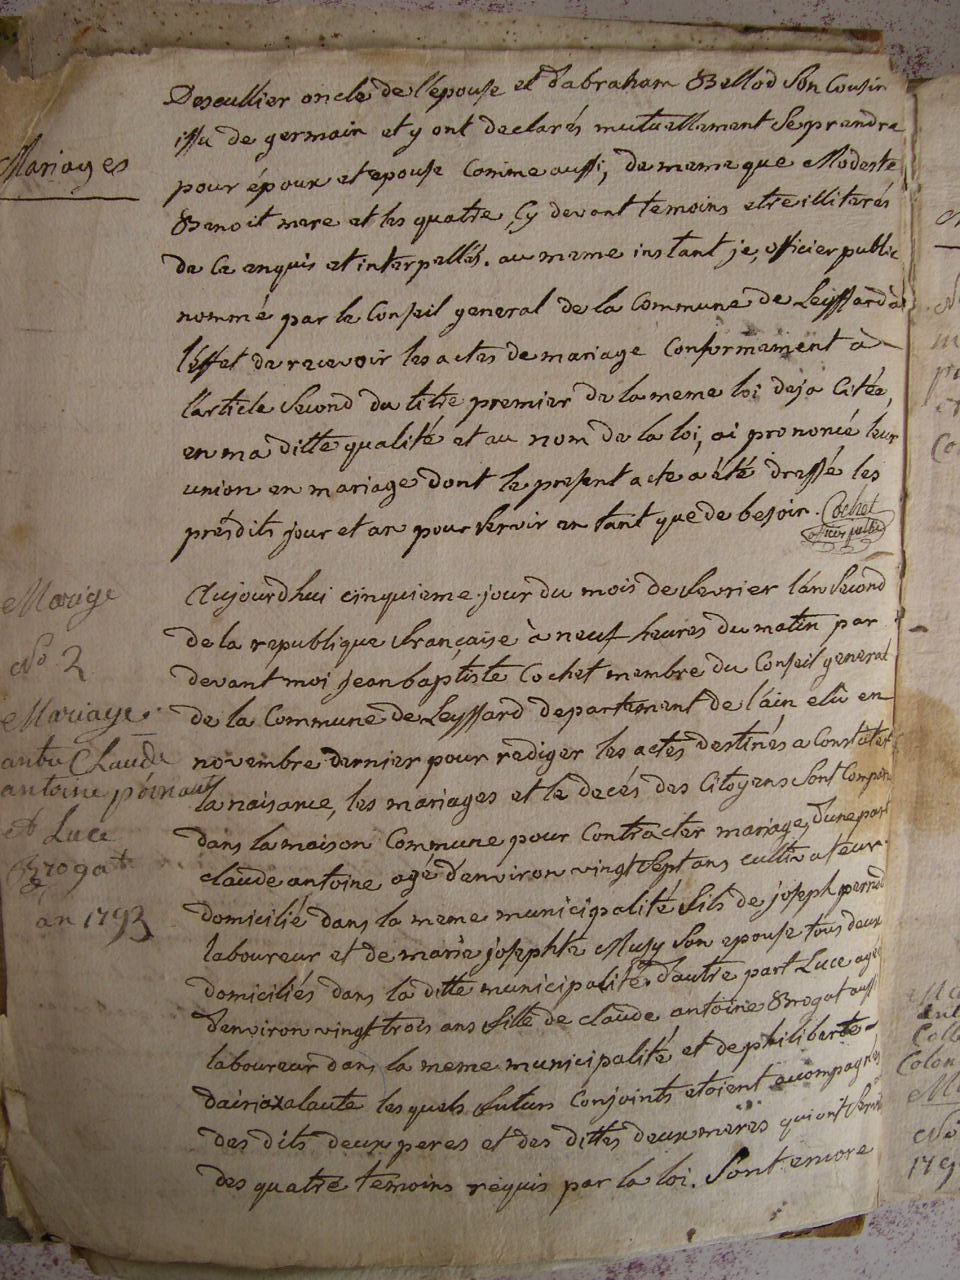 Mariages
Descullier oncle de l'épouse et d'abraham Bellod Son Cousin
issu de germain et y ont declarés mutuellement Se prendre
pour époux et epouse Comme aussi, de meme que Modeste
Benoit mere et les quatre Cy devant temoins etre illiterés
de Ce enquis et interpellés. au meme instant je, officier public
nommé par le Conseil general de la Commune de Leyssard à
l'éffet de recevoir les actes de mariage Conformement à
l'article Second du titre premier de la meme loi deja Citée,
en ma ditte qualité et au nom de la loi, ai prononcé leur
union en mariage dont le present acte a été dressé les
présdits jour et an pour Servir en tant que de besoin. Cochet
officier public
Mariage
No 2
Mariage
entre Claude
antoine
et Luce
Brogat
an 1793
Aujourdhui cinquieme jour du mois de fevrier l'an Second
de la republique française à neuf heures du matin par
devant moi jean baptiste Cochet membre du Conseil general
de la Commune de Leyssard departement de l'ain elû en
novembre dernier pour rediger les actes destinés a Constater
la naisance, les mariages et le decés des Citoyens Sont
dans la maison Commune pour Contracter mariage, d'une part
claude antoine agé d'environ vingt Sept ans cultivateur
domicilié dans la meme municipalité fils de joseph
laboureur et de marie josephte Musy Son epouse tous deux
domiciliés dans la ditte municipalité d'autre part Luce agée
d'environ vingt trois ans fille de claude antoine Brogat aussi
laboureur dans la meme municipalité et de philiberte
les quels futurs Conjoints etoient accompagnés
des dits deux peres et des dittes deux meres qui ont Servi
des quatre temoins requis par la loi. Sont encore